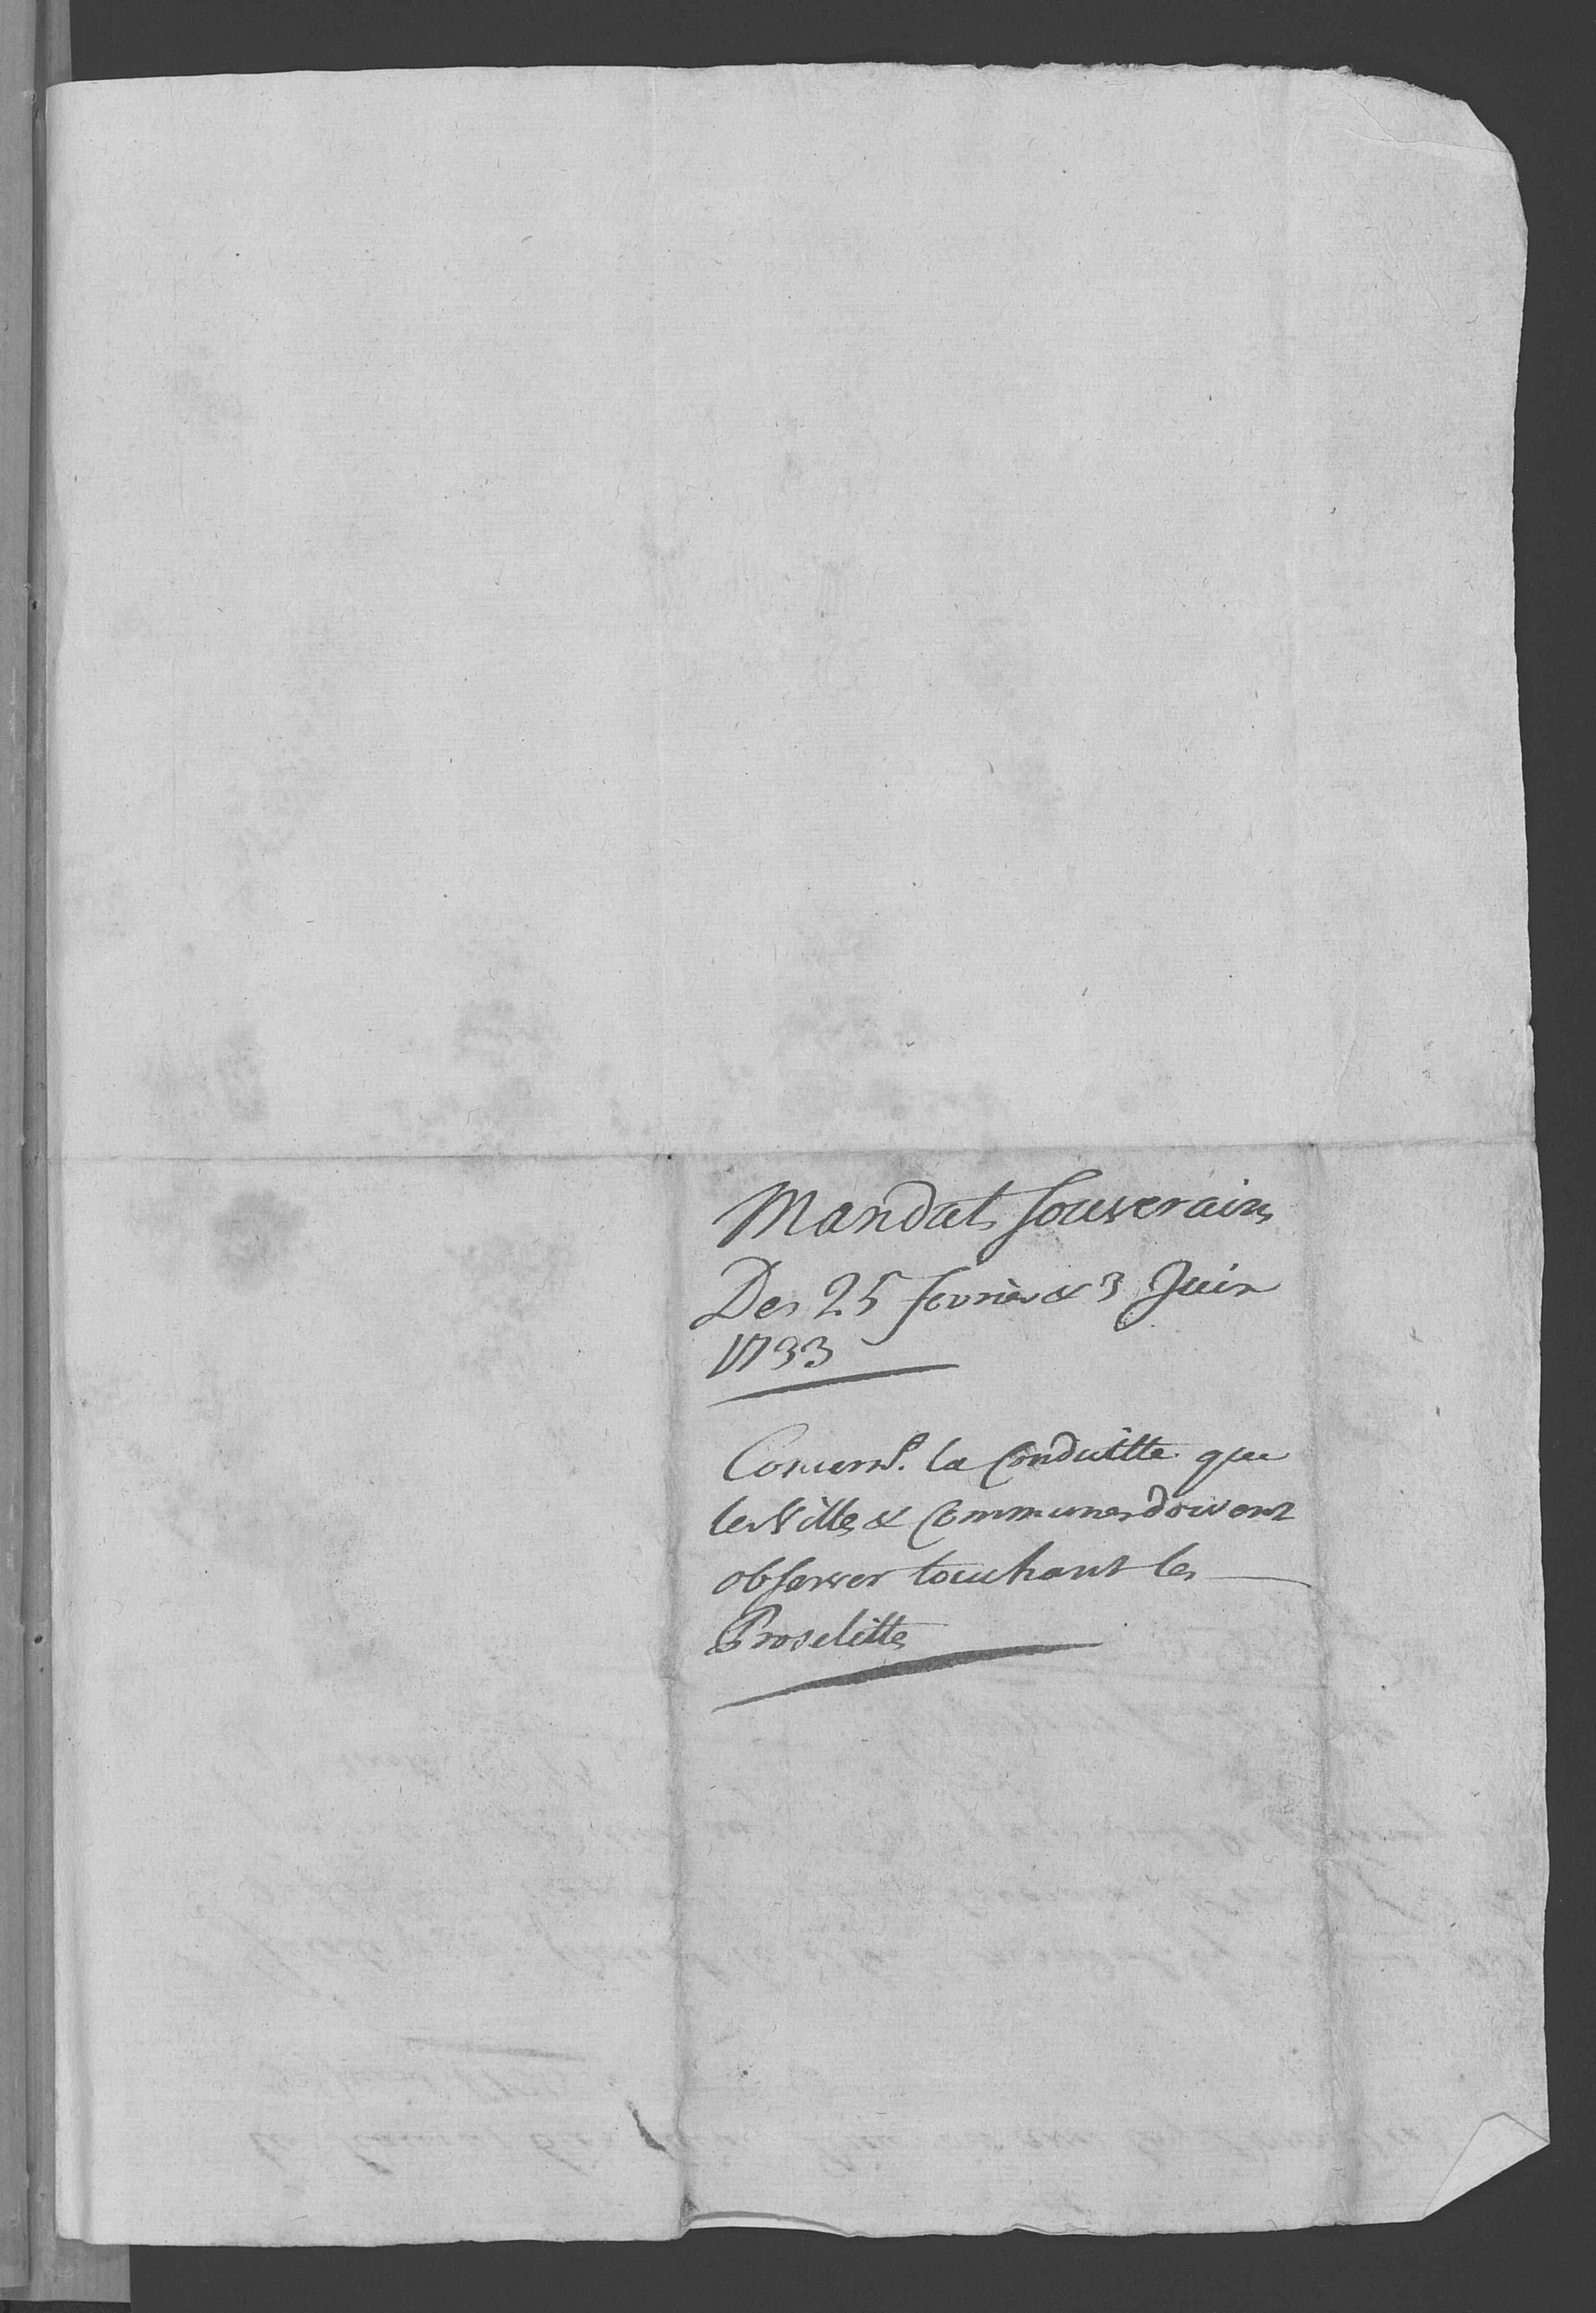 Mandats souverains
Des 25 fevrier & 3 Juin
1733
Concernt. la Conduitte que
les Villes & Communes doivent
observer touchant les
Proselittes